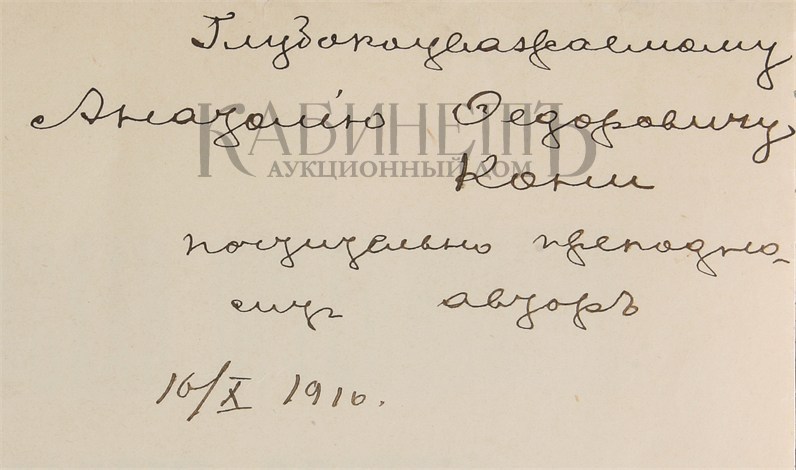 Глубокоуважаемому
Анатолію Ѳедоровичу
КАБИНЕТЪ
АУКЦИОННЫЙ ДОМ
Кони
почтительно преподно-
ситъ авторъ
16/X 1916.